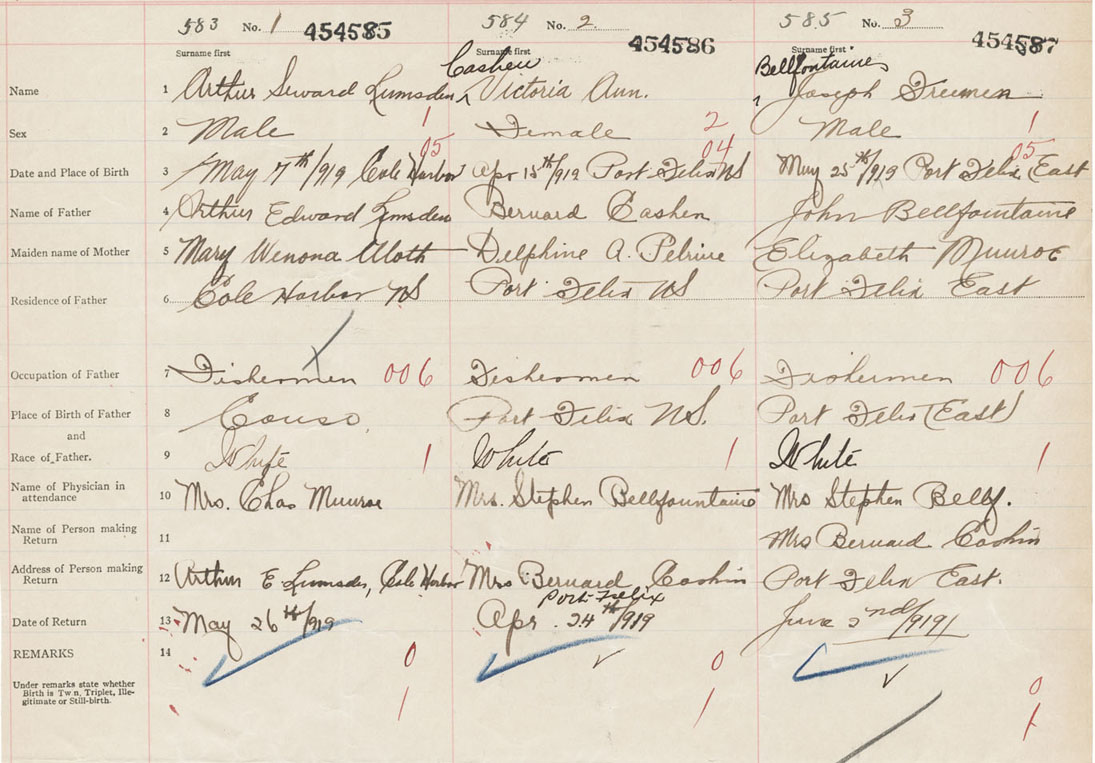 583 No. 1 454585 584 No. 2 454586 585 No. 3 454587
Surname first Surname first Surname first
Cashen Bellfontaine
Name 1 Arthur Seward Lumsden Victoria Ann. Joseph Freemen
Sex 2 Male 1 Female 2 Male 1
05 04 05
Date and Place of Birth 3 May 7th/919 Cole Harbor Apr 15th/919 Port Felix NS May 25th/919 Port Felix (East
Name of Father 4 Arthur Edward Lumsden Bernard Cashen John Bellfountaine
Maiden name of Mother 5 Mary Wenona Uloth Delphine A. Pelrine Elizabeth Munroe
Residence of Father 6 Cole Harbor NS Port Felix NS Port Felix East
Occupation of Father 7 Fishermen 006 Fishermen 006 Fishermen 006
Place of Birth of Father 8 Canso Port Felix NS. Port Felix (East)
and
Race of Father. 9 White 1 White 1 White 1
Name of Physician in attendance 10 Mrs. Chas Munroe Mrs. Stephen Bellfountaine Mrs Stephen Bellf.
Name of Person making Return 11 Mrs Bernard Cashin
Address of Person making Return 12 Arthur E Lumsden, Cole Harbor Mrs Bernard Cashin Port Felix East.
Port Felix
Date of Return 13 May 26th/919 Apr. 24th/919 June 2nd/9191
REMARKS 14 0 0
Under remarks state whether Birth is Twin, Triplet, Illegitimate or Still-birth. 1 1 0
1